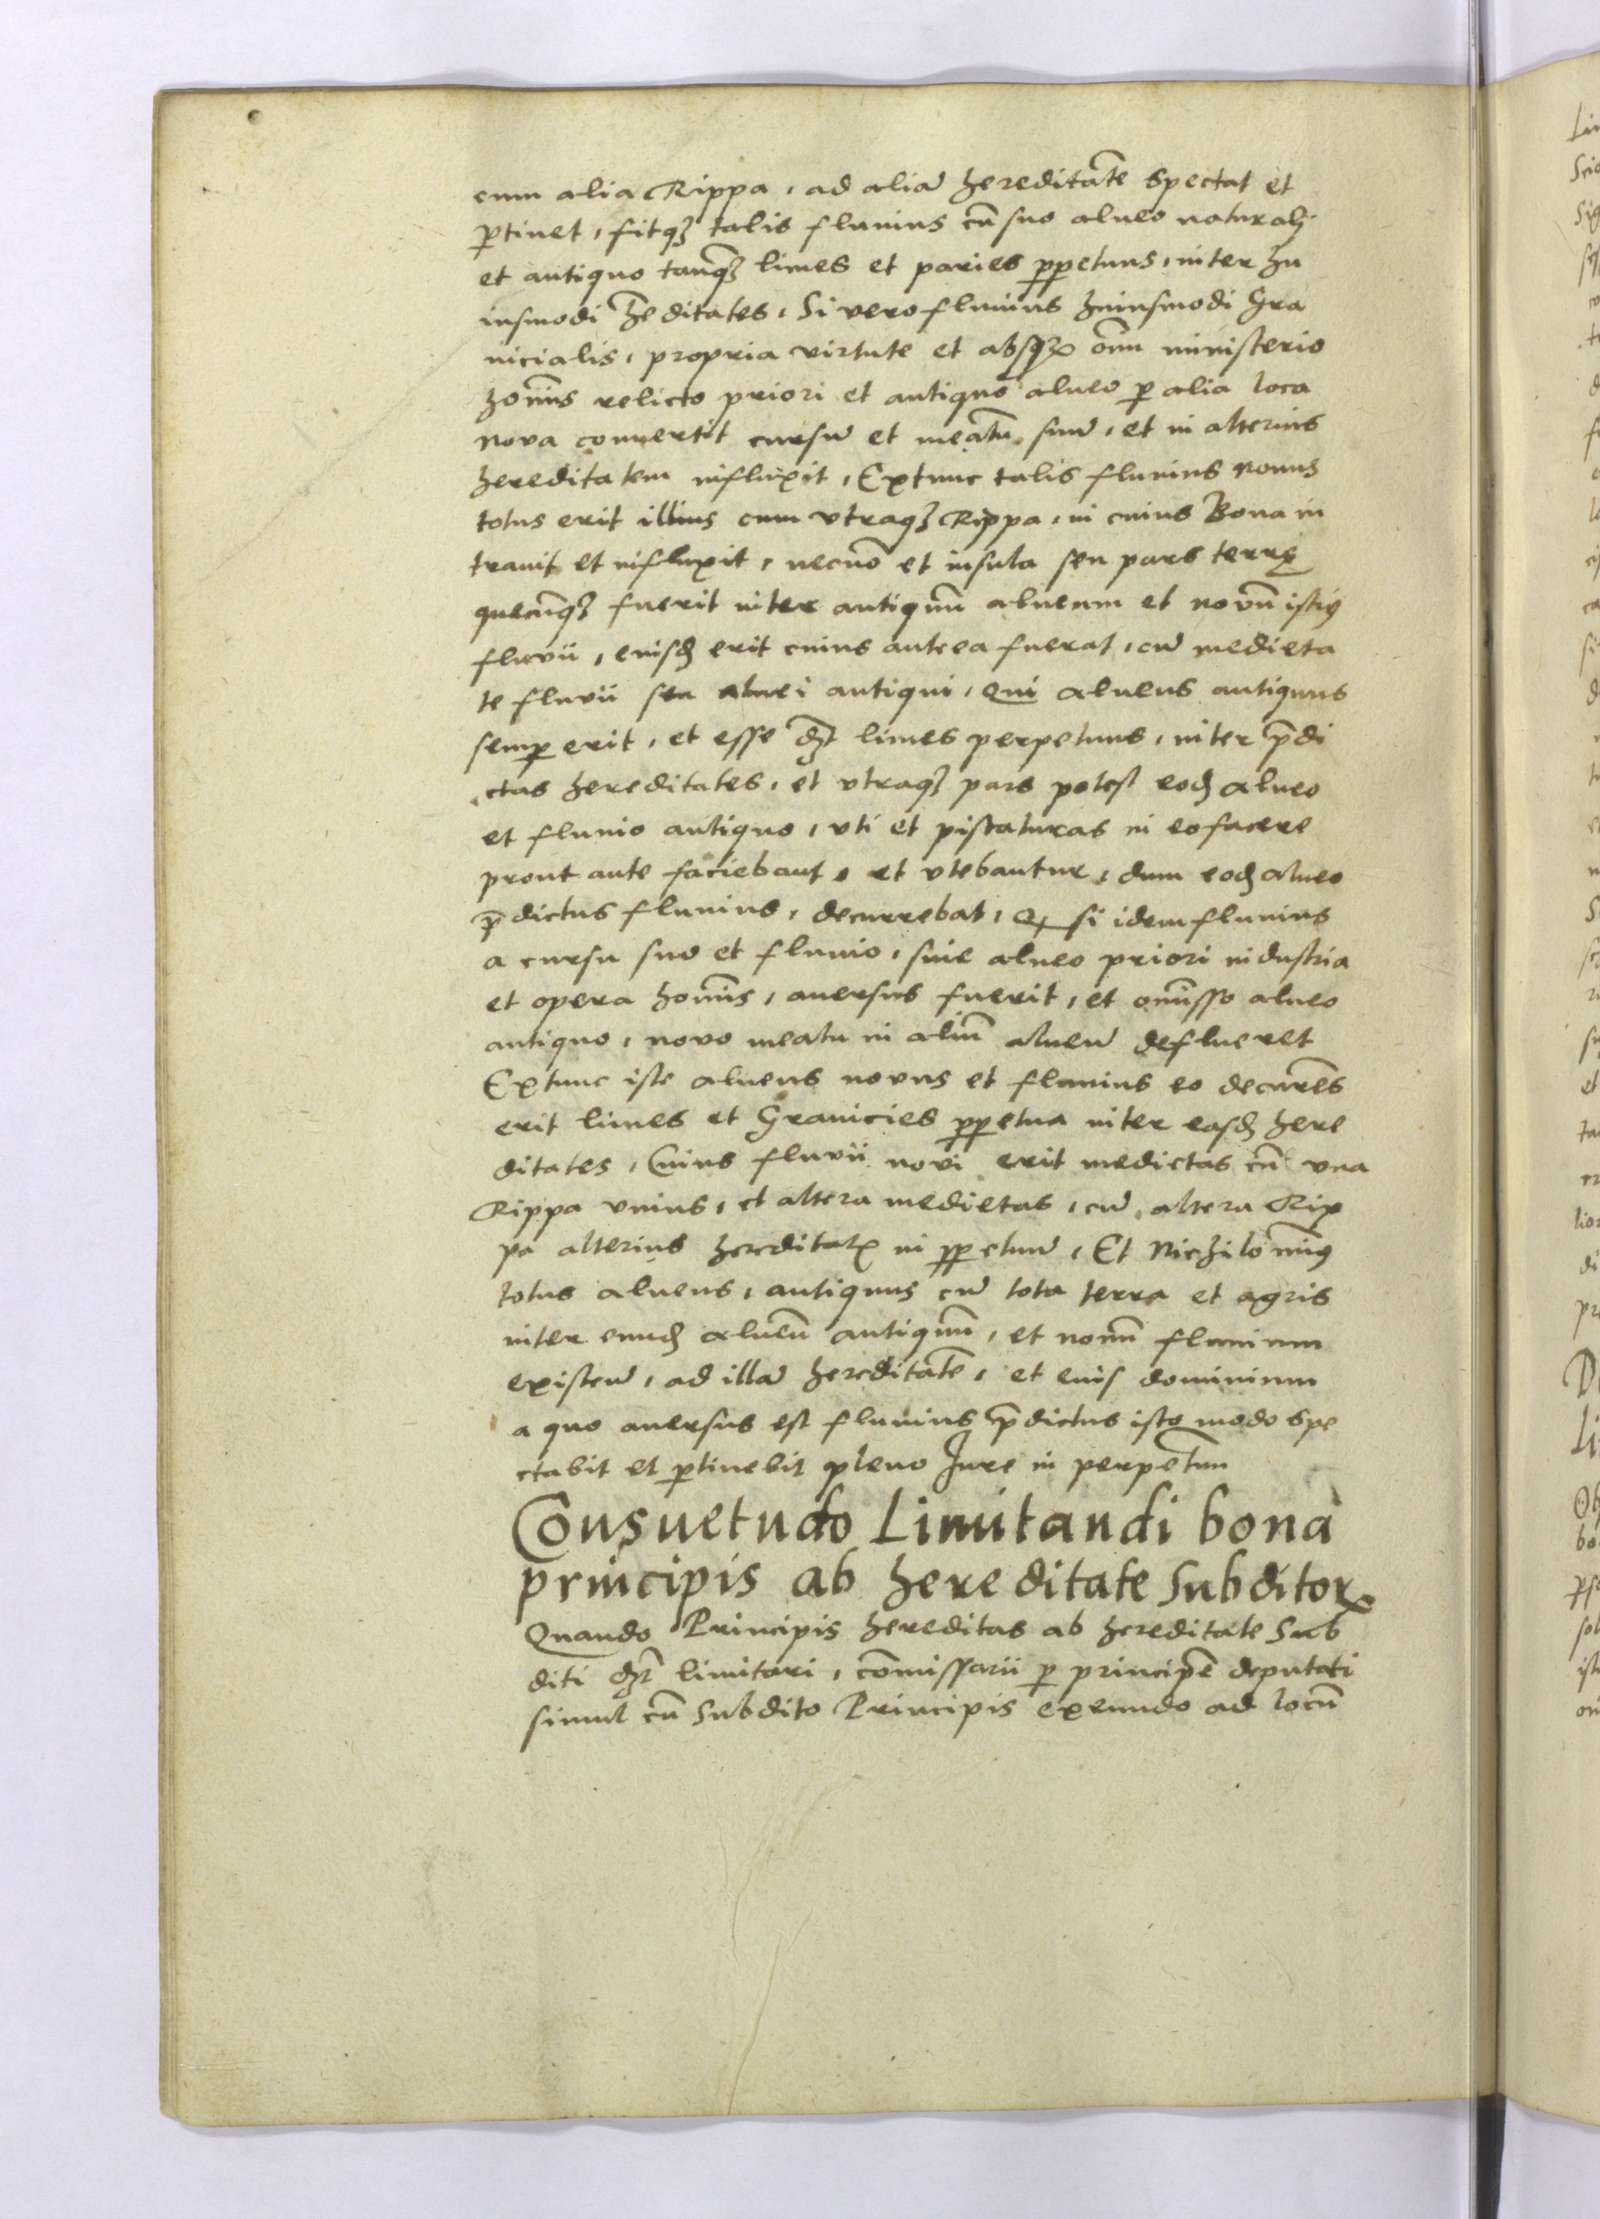 cum alia Rippa, ad aliã hereditatẽ spectat et
ꝑtinet, fitqꝫ talis fluuius cũ suo alueo naturali
et antiquo tanqꝫ limes et paries ꝑpetuus, inter hu
iusmodi h̃editates, Si vero fluuius huiusmodi Gra
nicialis, propria virtute et absqꝫ om̃i ministerio
hom̃is relicto priori et antiquo alueo ꝑ alia loca
nova conuertit cursũ et meatũ suũ, et in alterius
hereditatem influxit, Extunc talis fluuius nouus
totus erit illius cum vtraqꝫ Rippa, in cuius Bona in
trauit et influxit, necnõ et insula seu pars terrę
quecũqꝫ fuerit inter antiquũ alueum et novũ istiꝰ
fluvii, eiusđ erit cuius antea fuerat, cũ medieta
te fluvii seu aluei antiqui, Qui alueus antiquus
semꝑ erit, et esse dꝫt limes perpetuus, inter p̃di
ctas hereditates, et vtraqꝫ pars potest eođ alueo
et fluuio antiquo, vti et piscaturas in eo facere
prout ante faciebant, et vtebantur, dum eođ alueo
p̃dictus fluuius, decurrebat, Qꝫ si idem fluuius
a cursu suo et fluuio, siue alueo priori industria
et opera hom̃is, auersus fuerit, et omisso alueo
antiquo, novo meatu in aliũ alueũ deflueret
Extunc iste alueus novus et fluuius eo decurẽs
erit limes et Granicies ꝑpetua inter easđ here
ditates, Cuius fluvii novi erit medietas cũ vna
Rippa vnius, et altera medietas, cũ altera Rip
pa alterius hereditatꝭ in ꝑpetuũ, Et Nichilomiñꝰ
totus alueus, antiquus cũ tota terra et agris
inter eunđ alueũ antiquũ, et nouũ fluuium
existeñ, ad illã hereditatẽ, et eius dominium
a quo auersus est fluuius p̃dictus isto modo spe
ctabit et ꝑtinebit pleno Jure in perpetũũ
Consuetudo Limitandi bona
principis ab hereditate Subditoꝝ
Quando Principis hereditas ab hereditate Sub
diti dꝫt limitari, com̃issarii ꝑ principẽ deputati
simul cũ Subdito Principis exeundo ad locũ